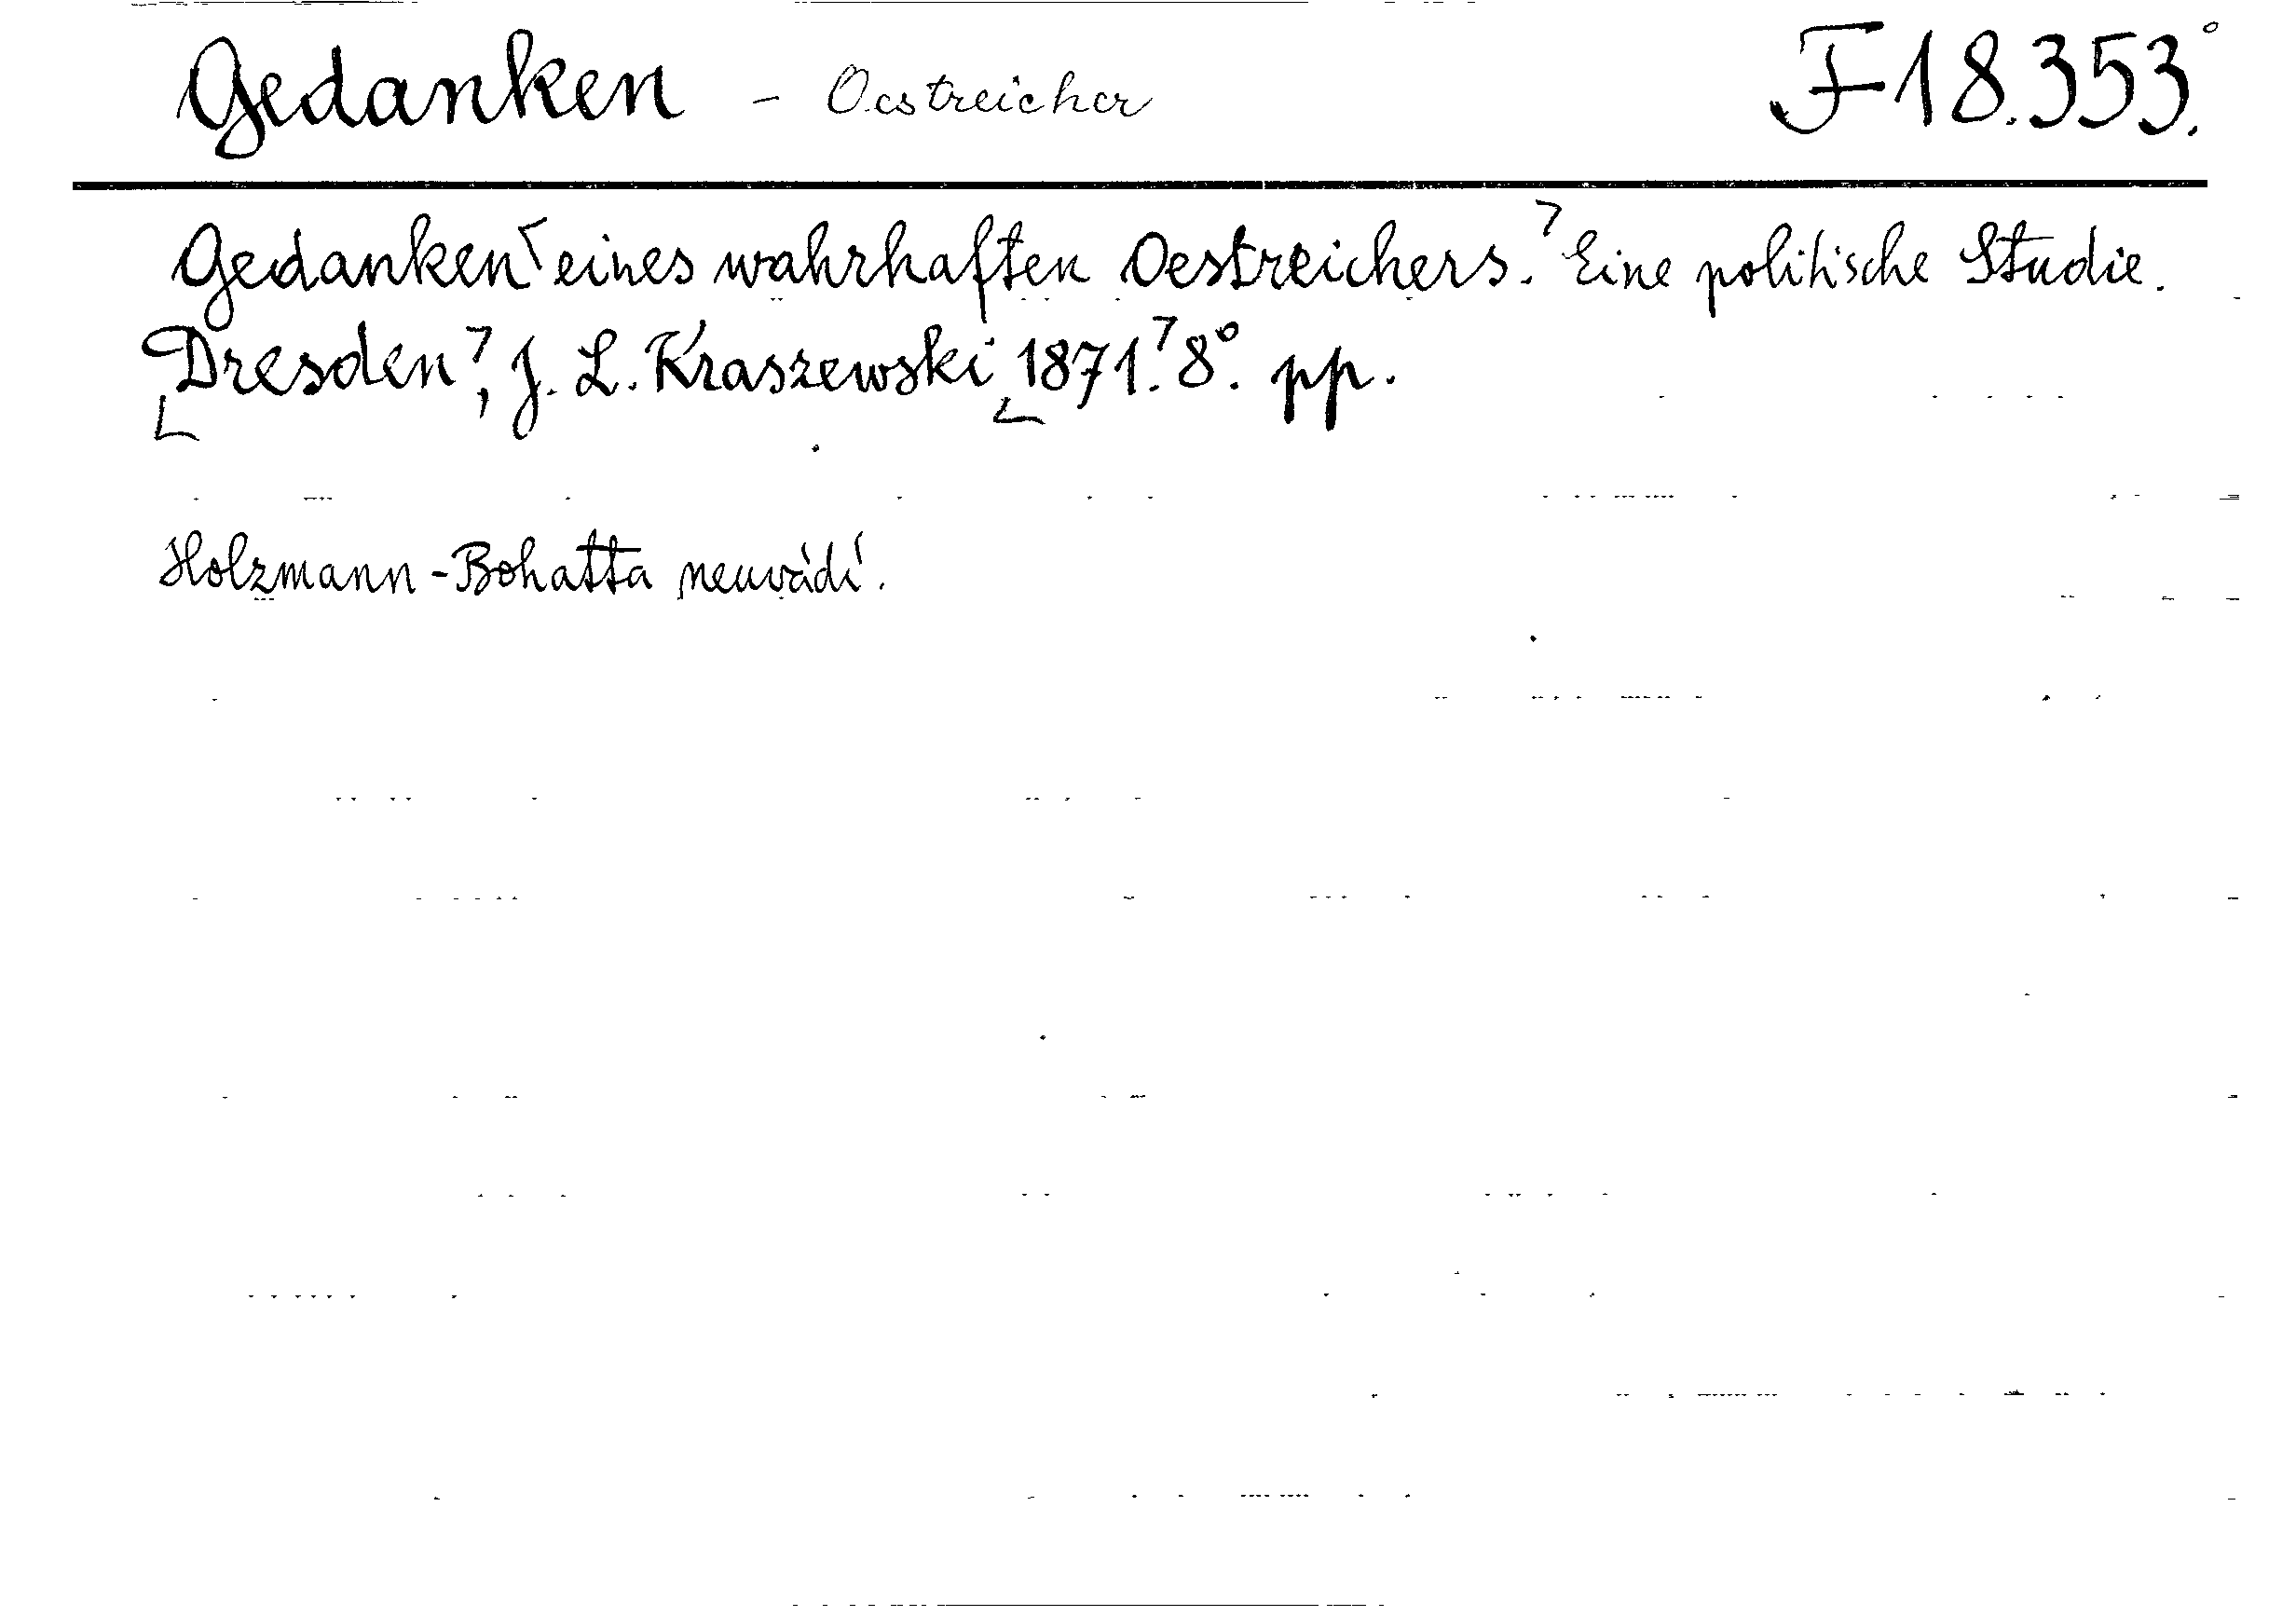 Gedanken - Oestreicher F 18.353.°
Gedanken eines wahrhaften Oestreichers. Eine politische Studie.
Dresden, J. L. Kraszewski 1871. 8°. pp.
Holzmann-Bohatta neuvádí.